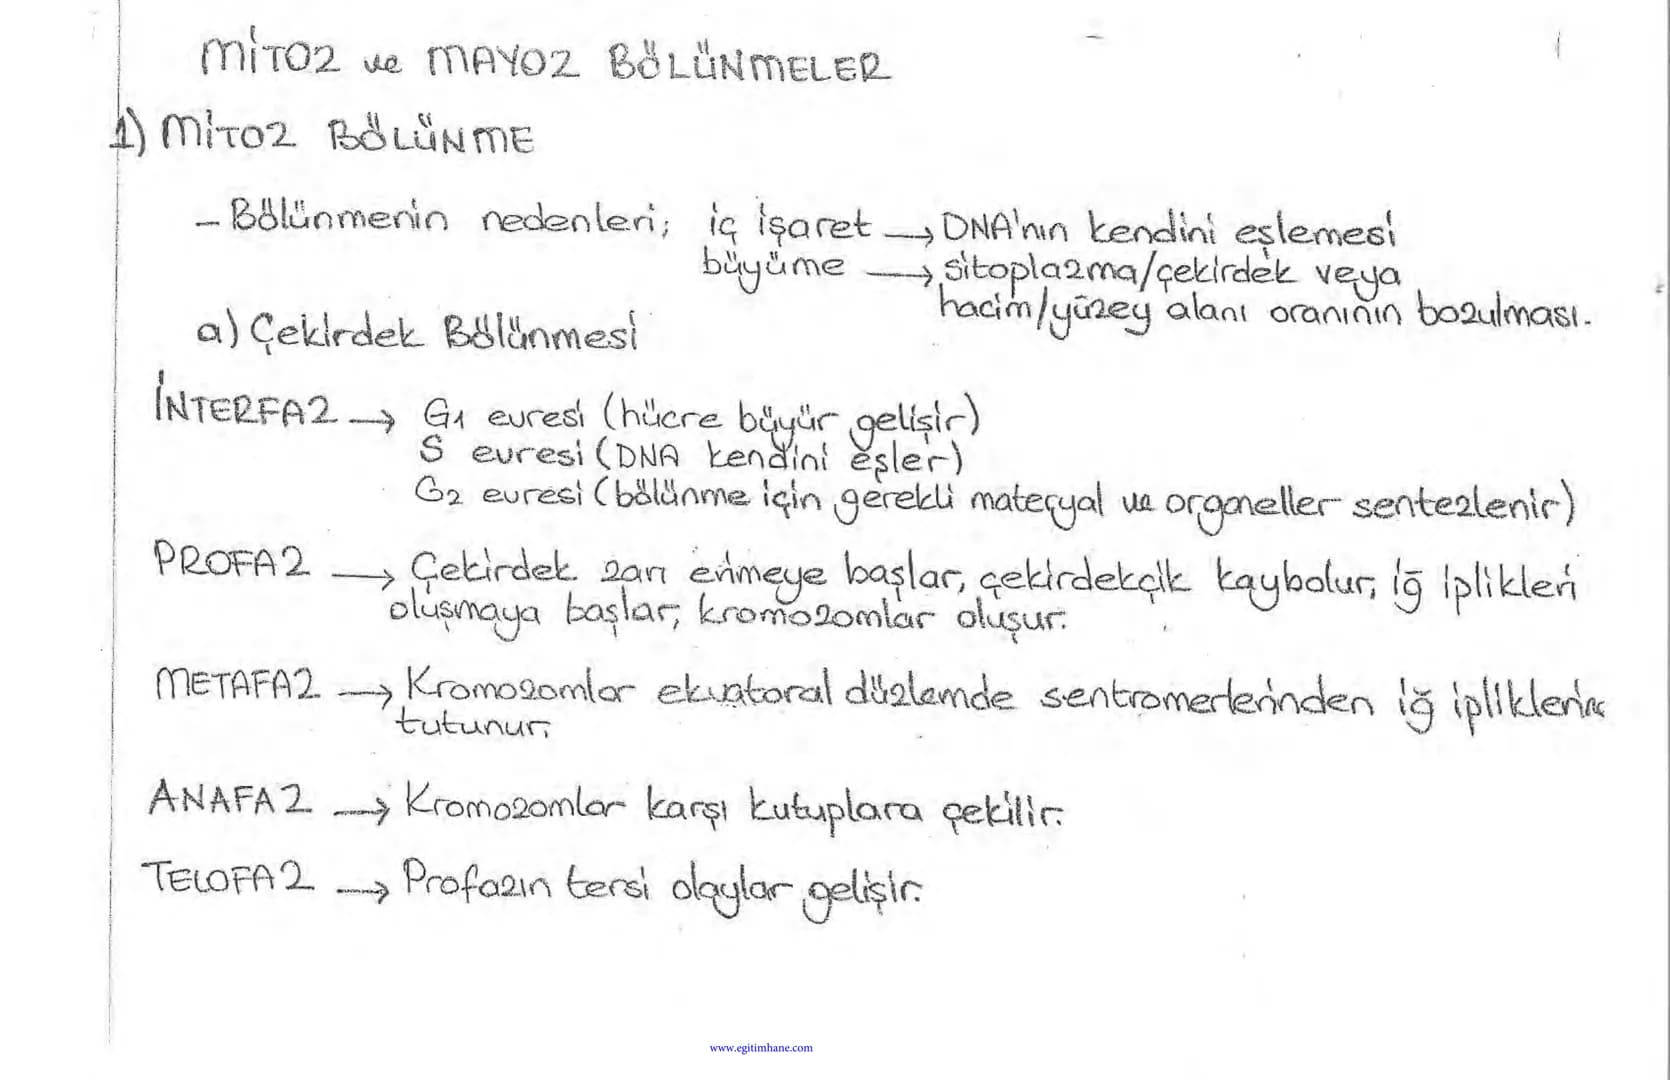 MİTOZ ve MAYOZ BÖLÜNMELER
1) MİTOZ BÖLÜNME
- Bölünmenin nedenleri; iç işaret → DNA'nın kendini eşlemesi
büyüme → sitoplazma/çekirdek veya
hacim/yüzey alanı oranının bozulması.
a) Çekirdek Bölünmesi
İNTERFAZ → G1 evresi (hücre büyür gelişir)
S evresi (DNA kendini eşler)
G2 evresi (bölünme için gerekli materyal ve organeller sentezlenir)
PROFAZ → Çekirdek zarı erimeye başlar, çekirdekçik kaybolur, iğ iplikleri
oluşmaya başlar, kromozomlar oluşur.
METAFAZ → Kromozomlar ekvatoral düzlemde sentromerlerinden iğ ipliklerine
tutunur.
ANAFAZ → Kromozomlar karşı kutuplara çekilir.
TELOFAZ → Profazın tersi olaylar gelişir.
www.egitimhane.com